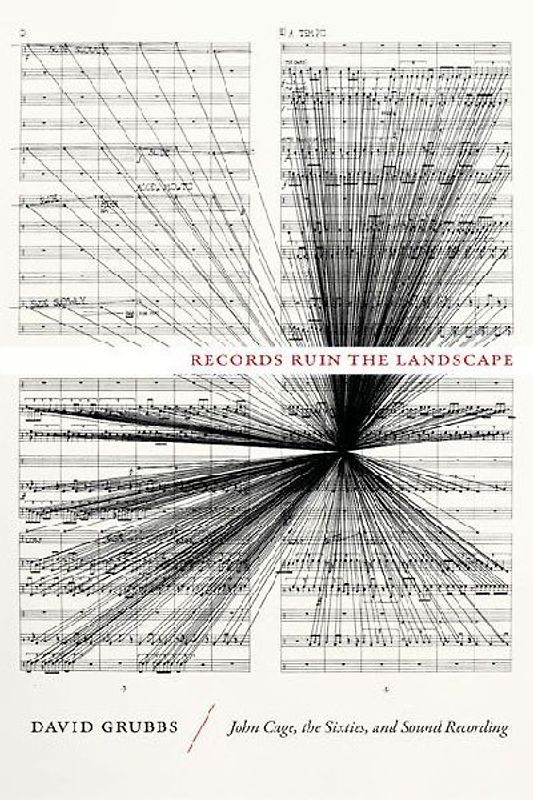 A TEMPO
RECORDS RUIN THE LANDSCAPE
DAVID GRUBBS / John Cage, the Sixties, and Sound Recording